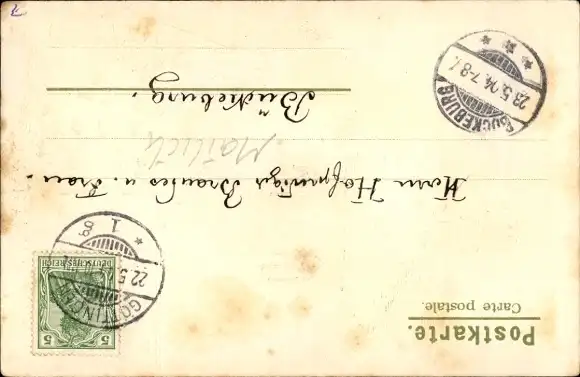 Postkarte.
Carte postale.
5 5
DEUTSCHES REICH
GÖTTINGEN
22.5.
1
* 8-9
Herrn Hofprediger Brauses u. Frau.
Bückeburg.
BÜCKEBURG
23.5.04.7-8
* * *